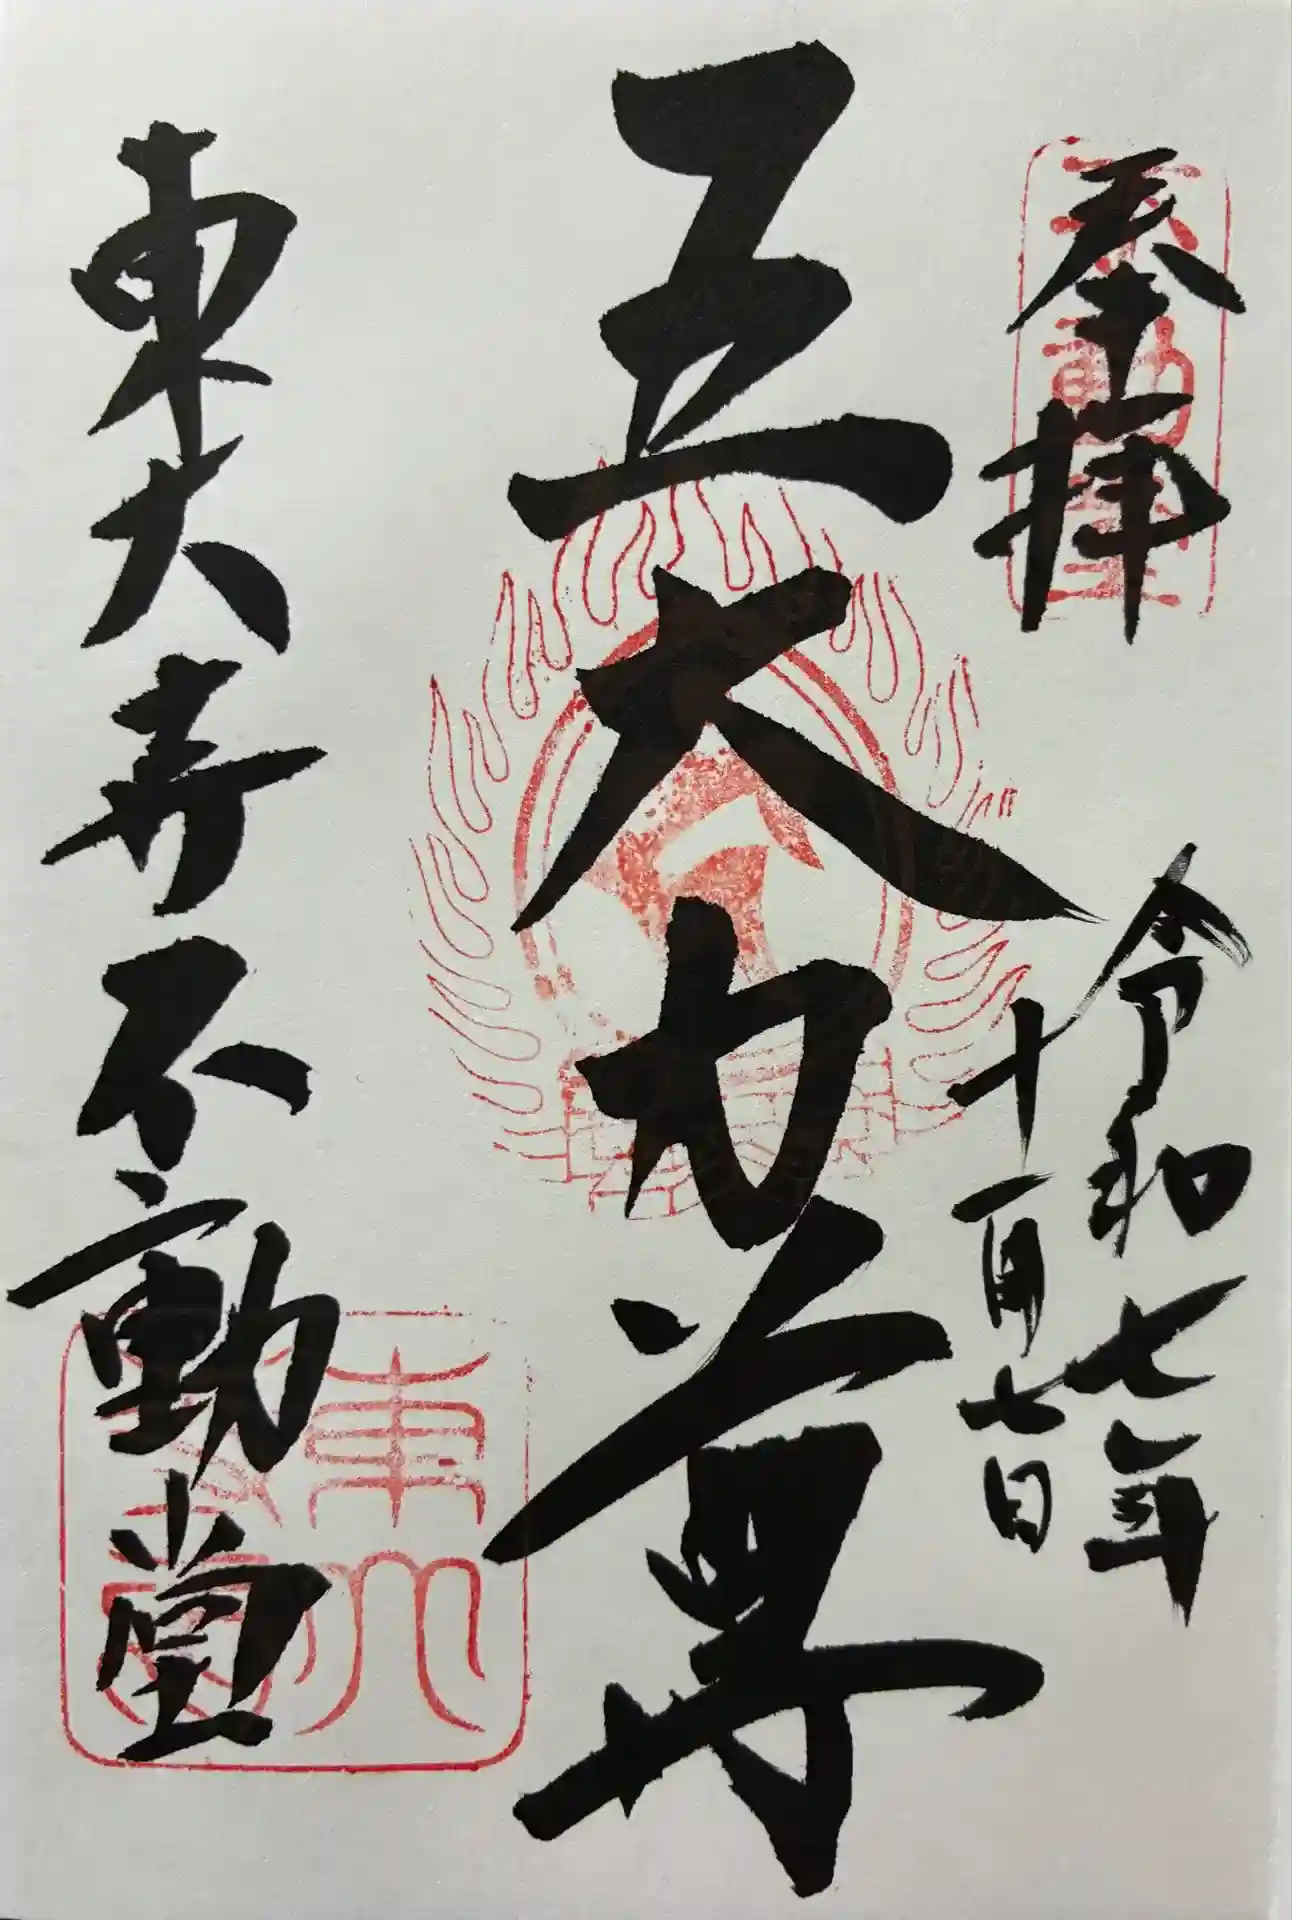 奉拝
不動堂
令和七年
十一月七日
五大力尊
東大寺不動堂